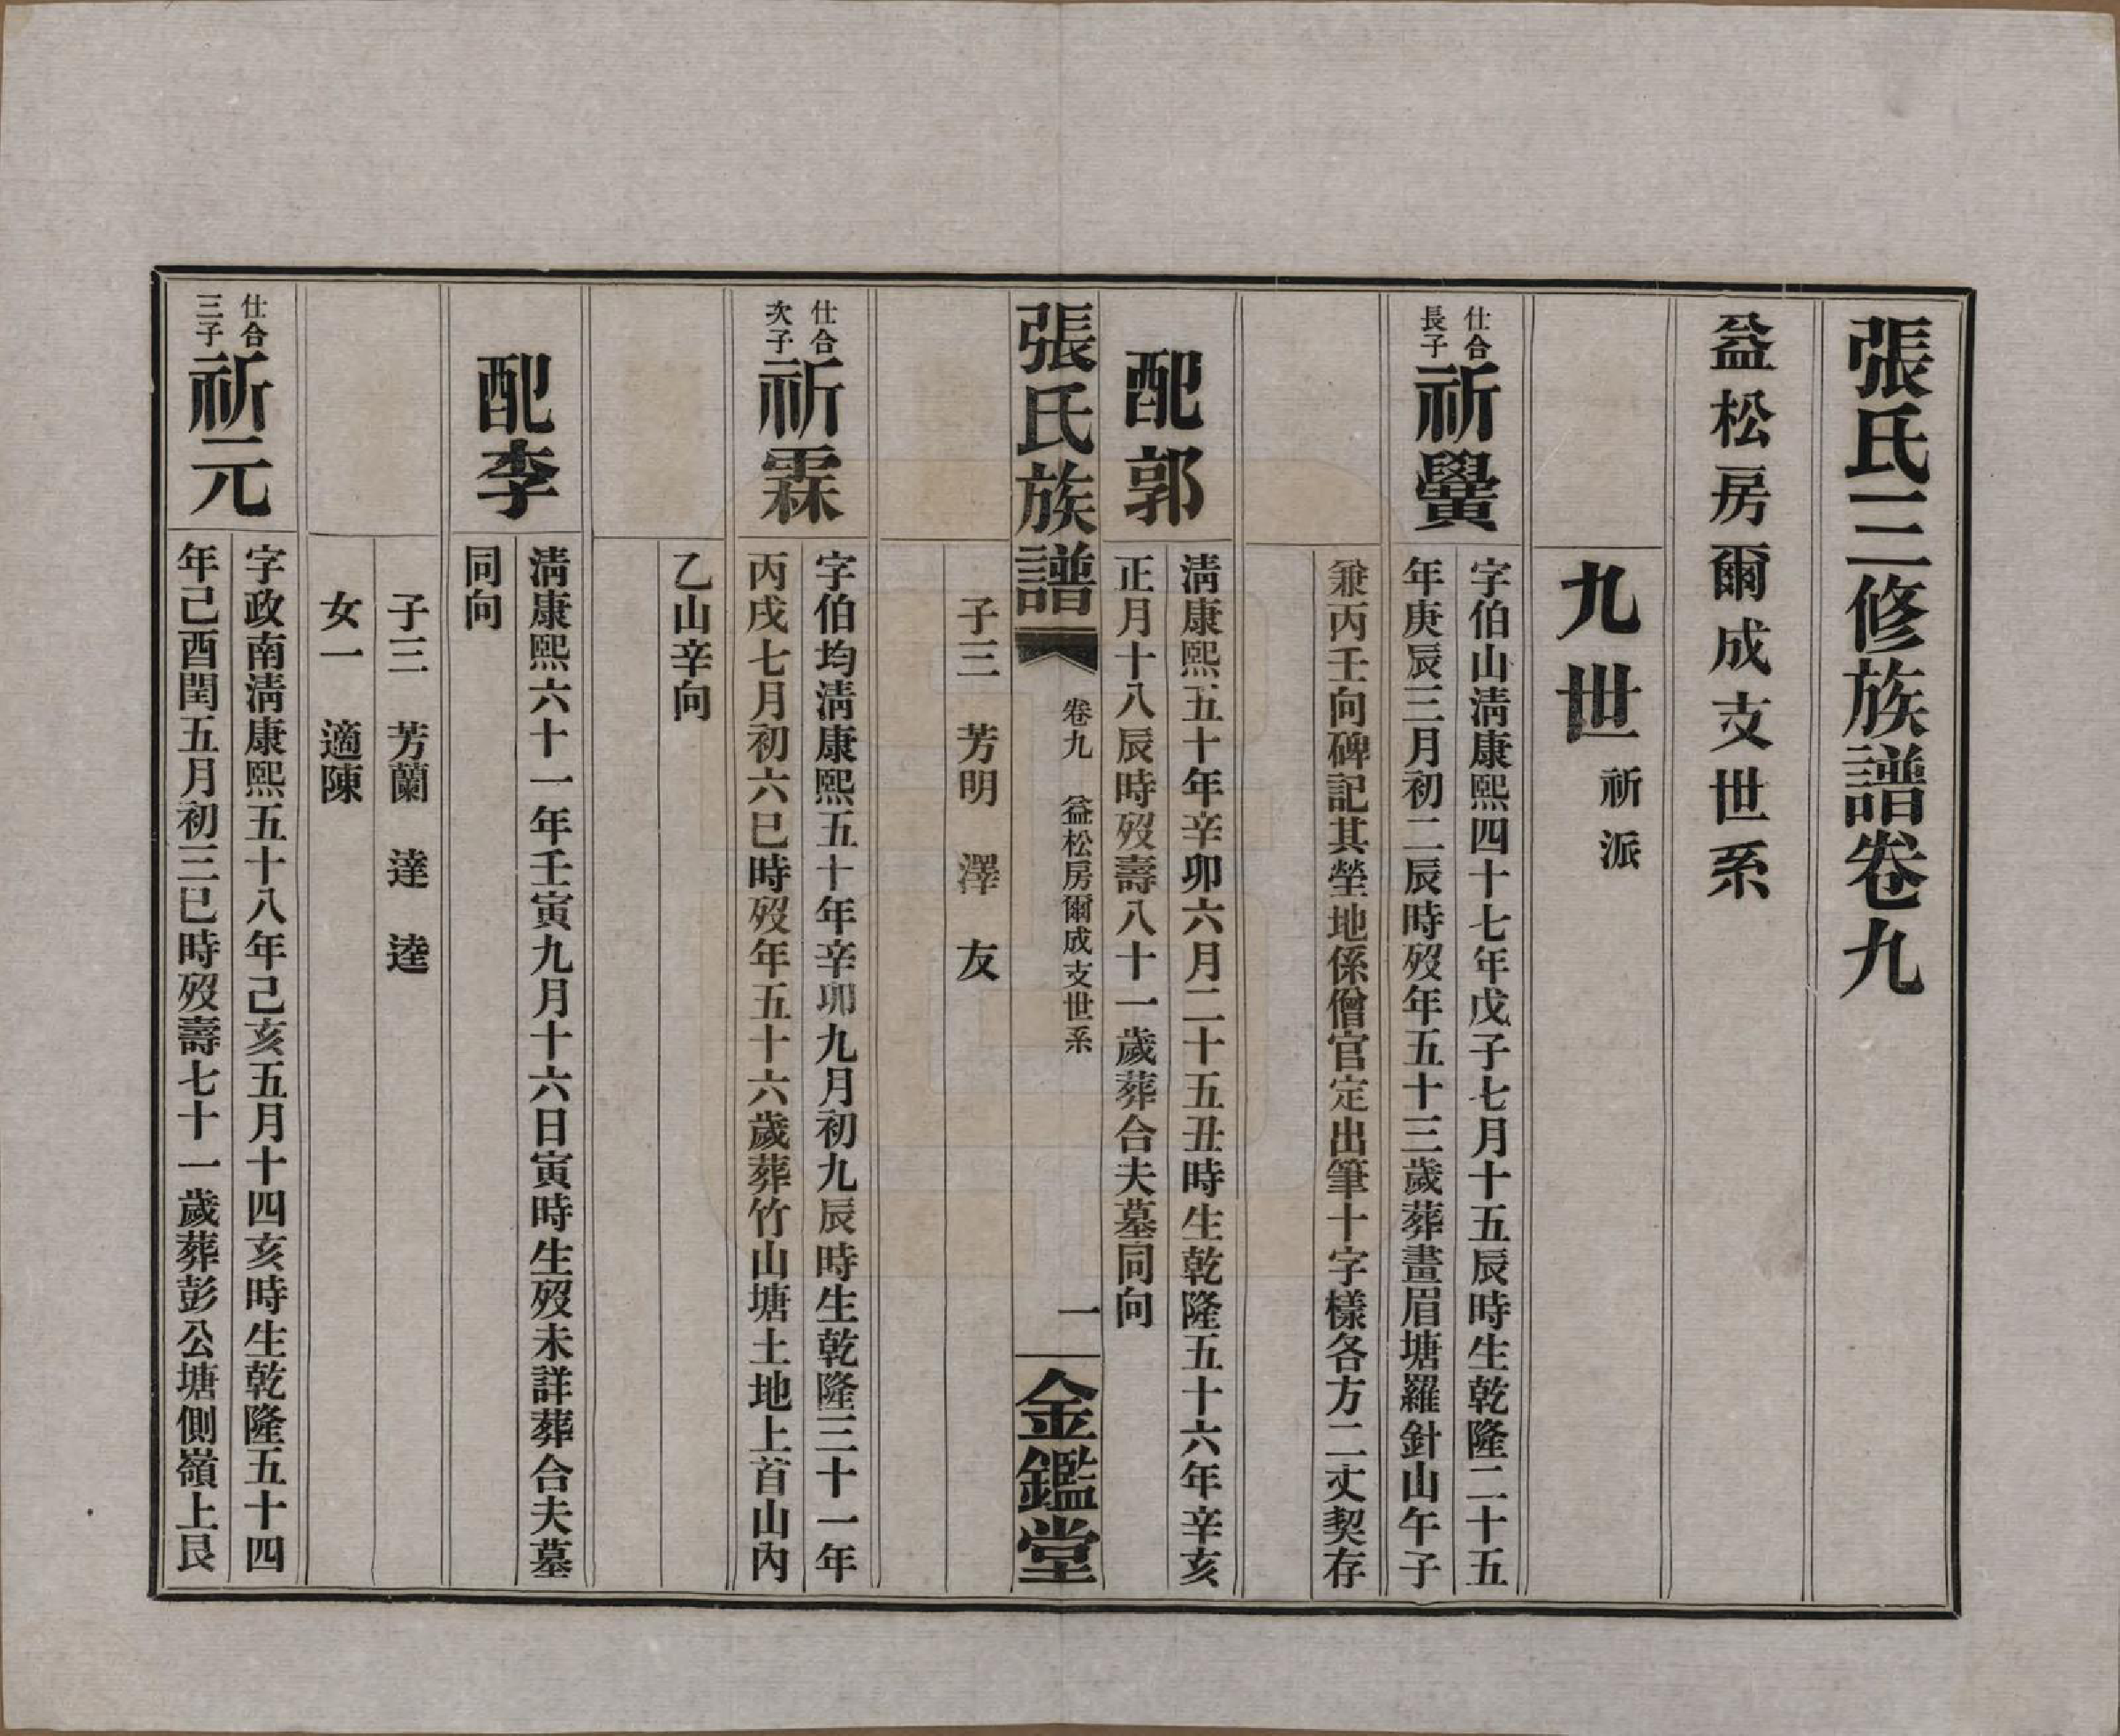 張氏三修族譜卷九
益松房爾成支世系
九世 祈派
仕合長子 祈黌
字伯山淸康熙四十七年戊子七月十五辰時生乾隆二十五
年庚辰三月初二辰時歿年五十三歲葬畫眉塘羅針山午子
兼丙壬向碑記其塋地係僧官定出筆十字樣各方二丈契存
配郭
淸康熙五十年辛卯六月二十五丑時生乾隆五十六年辛亥
正月十八辰時歿壽八十一歲葬合夫墓同向
張氏族譜 卷九 益松房爾成支世系 一 金鑑堂
子三 芳明 澤 友
仕合次子 祈霖
字伯均淸康熙五十年辛卯九月初九辰時生乾隆三十一年
丙戌七月初六巳時歿年五十六歲葬竹山塘土地上首山內
乙山辛向
配李
淸康熙六十一年壬寅九月十六日寅時生歿未詳葬合夫墓
同向
子三 芳蘭 達 逵
女一 適陳
仕合三子 祈元
字政南淸康熙五十八年己亥五月十四亥時生乾隆五十四
年己酉閏五月初三巳時歿壽七十一歲葬彭公塘側嶺上艮